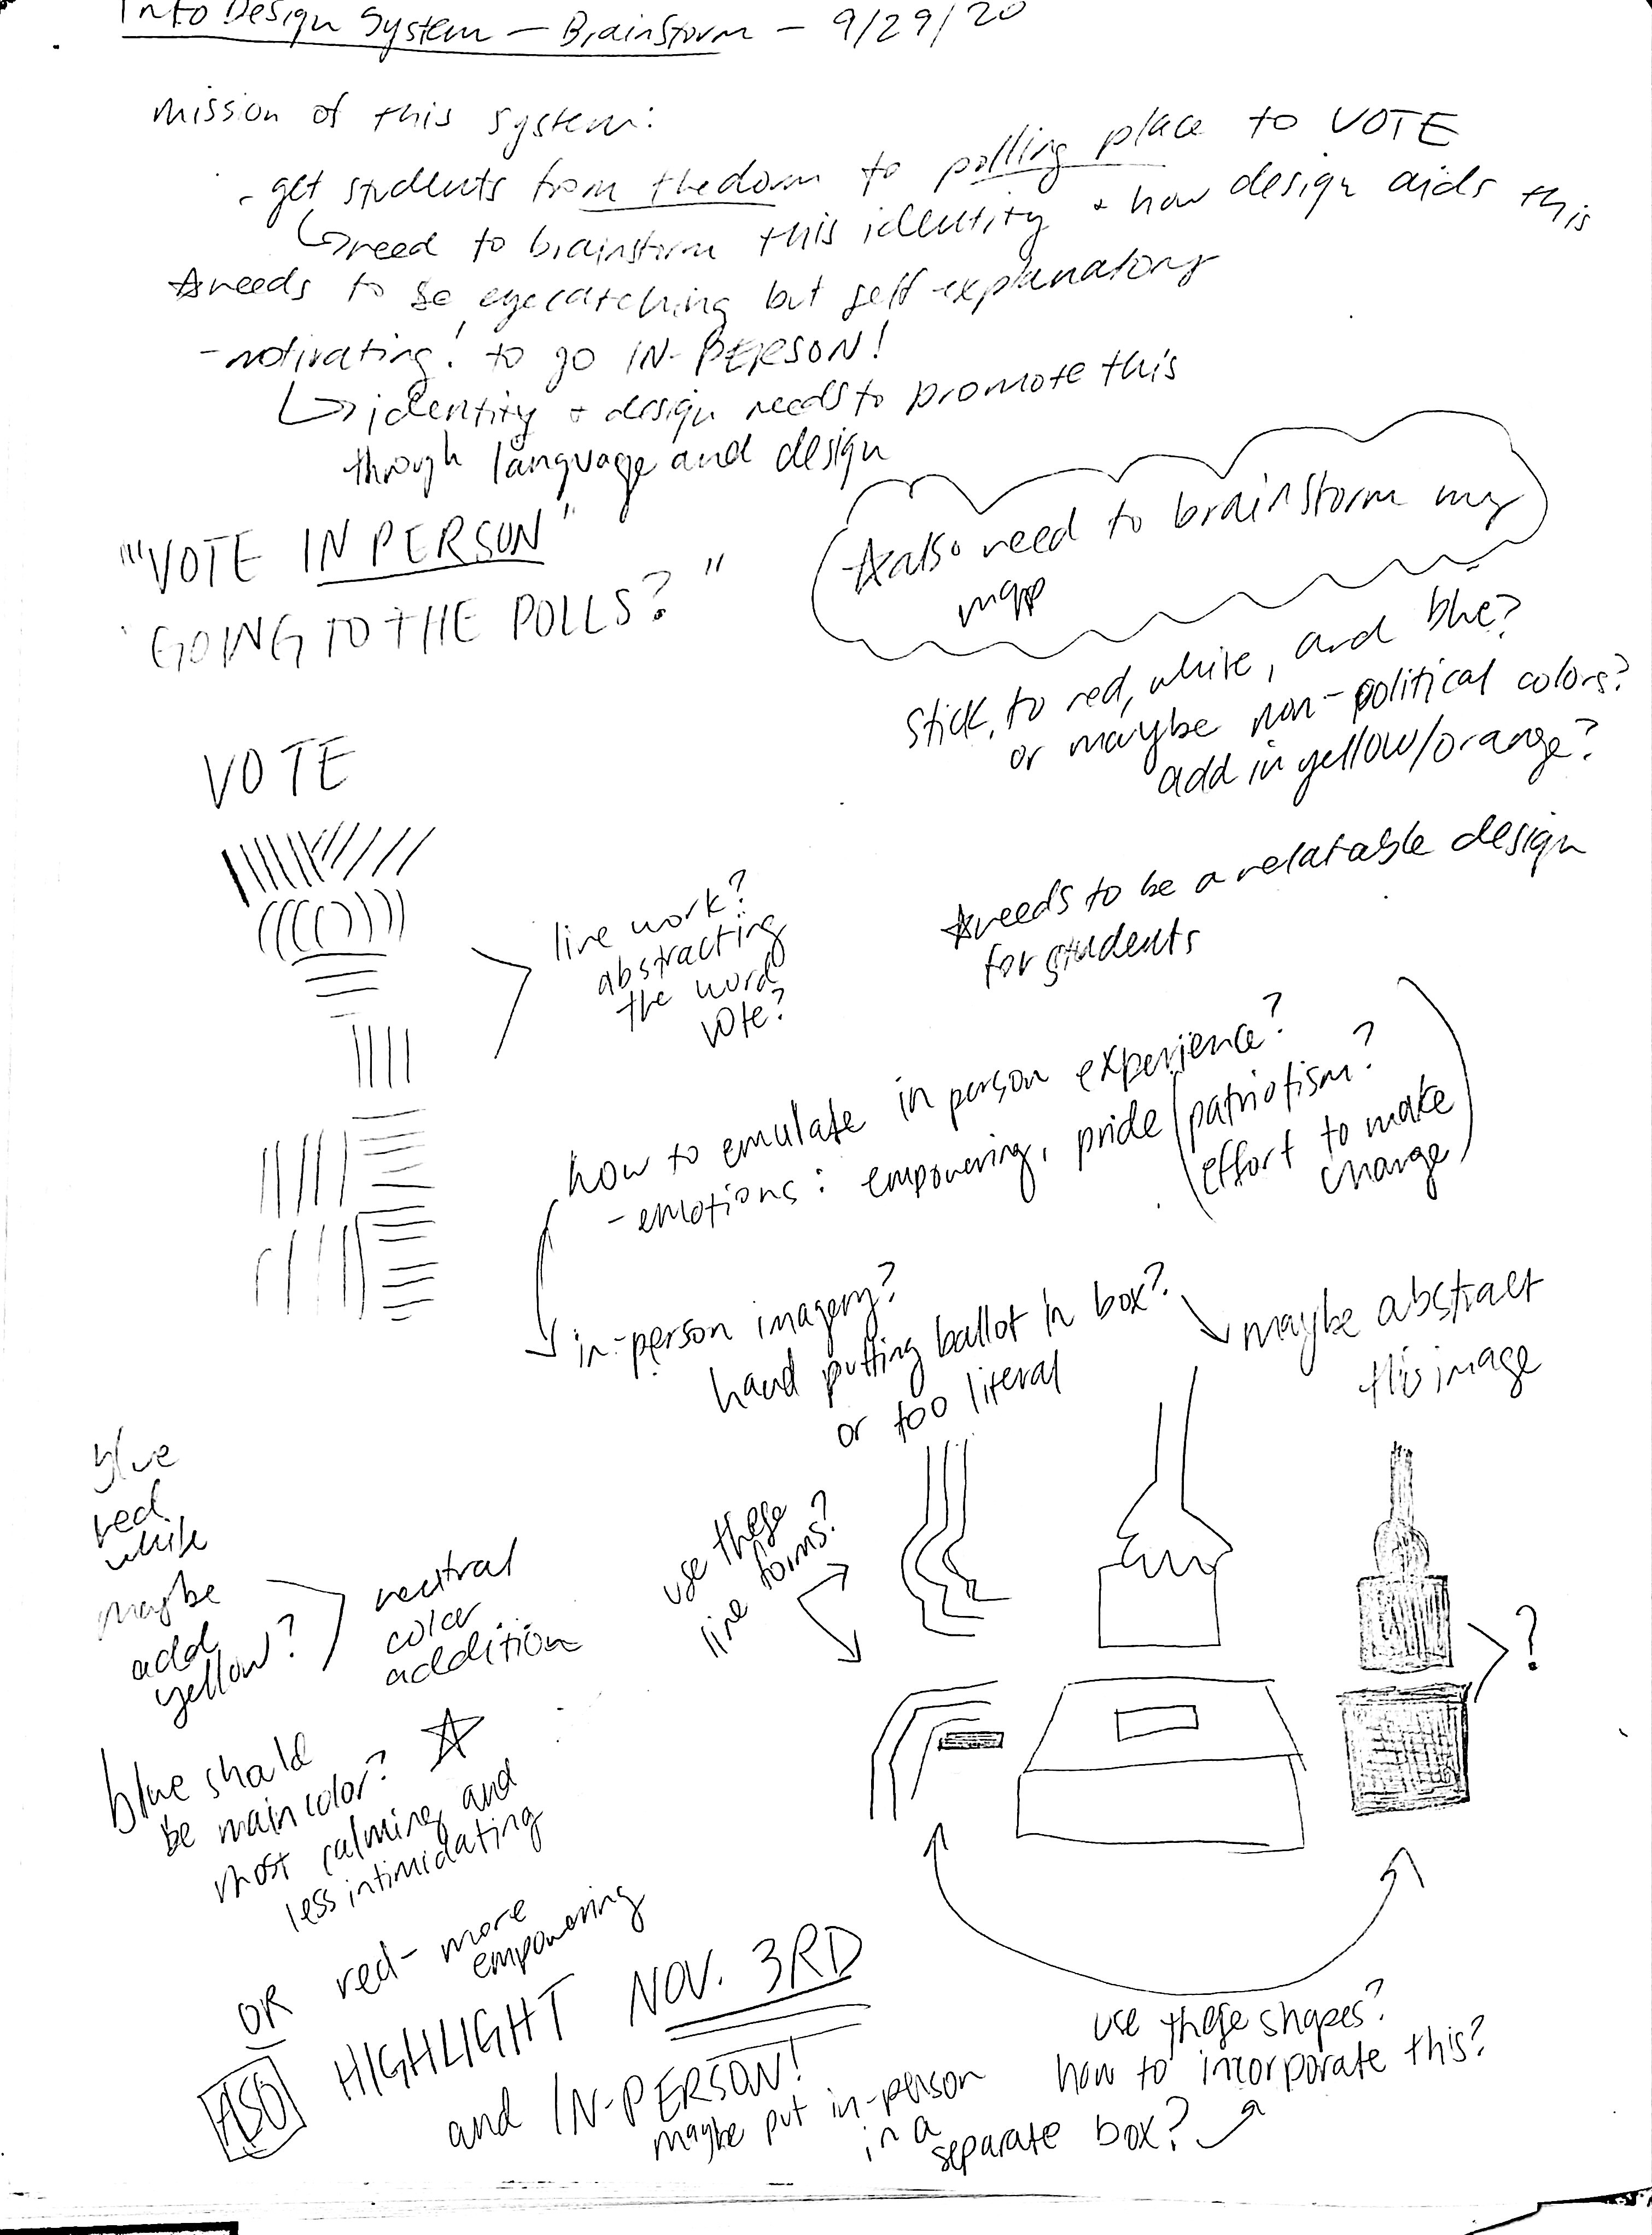 Info Design System — Brainstorm — 9/29/20
mission of this system:
- get students from the dorm to polling place to VOTE
need to brainstorm this identity + how design aids this
☆needs to be eyecatching but self-explanatory
- motivating! to go IN-PERSON!
identity + design needs to promote this
though language and design
"VOTE IN PERSON"
GOING TO THE POLLS?"
☆also need to brainstorm my
map
stick to red, white, and blue?
or maybe non-political colors?
add in yellow/orange?
VOTE
line work?
abstracting
the word
vote?
☆needs to be a relatable design
for students
how to emulate in person experience?
- emotions: empowering, pride (patriotism?
effort to make
change)
in-person imagery?
hand putting ballot in box?
or too literal
maybe abstract
this image
use these
line forms?
?
blue
red
white
maybe
add
yellow?
neutral
color
addition
blue shold
be main color? ☆
most calming and
less intimidating
OR red - more
empowering
ALSO HIGHLIGHT NOV. 3RD
and IN-PERSON!
maybe put in-person
in a
separate box?
use these shapes?
how to incorporate this?